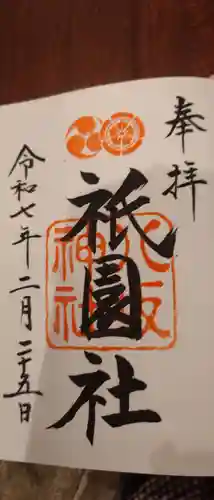 奉拝
八坂神社
祇園社
令和七年二月二十五日